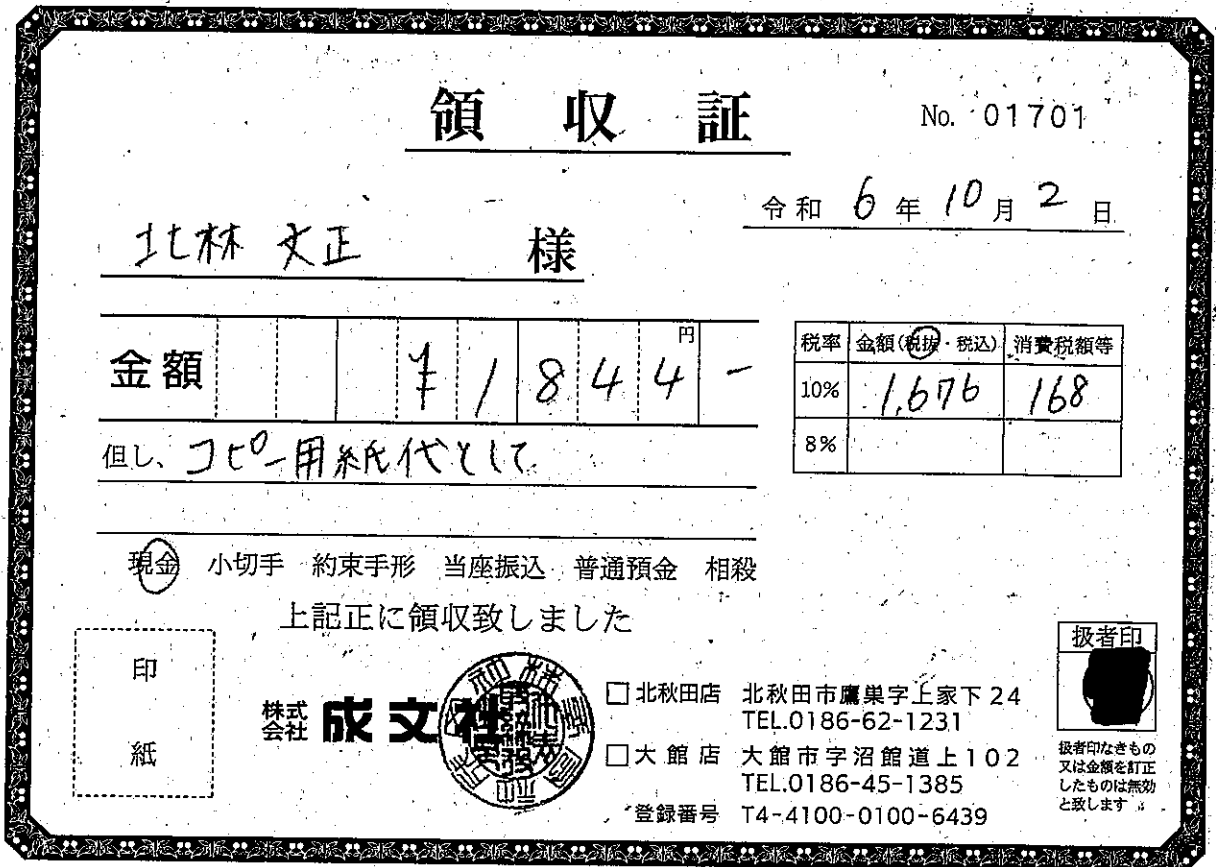 領収証
No. 01701
令和 6 年 10 月 2 日
北林 丈正 様
金額 ¥1844円-
税率 金額(税抜・税込) 消費税額等
10% 1,676 168
8%
但し、コピー用紙代として
現金 小切手 約束手形 当座振込 普通預金 相殺
上記正に領収致しました
印紙
株式会社 成文社
□北秋田店 北秋田市鷹巣字上家下24
TEL.0186-62-1231
□大館店 大館市字沼館道上102
TEL.0186-45-1385
登録番号 T4-4100-0100-6439
扱者印
扱者印なきもの
又は金額を訂正
したものは無効
と致します